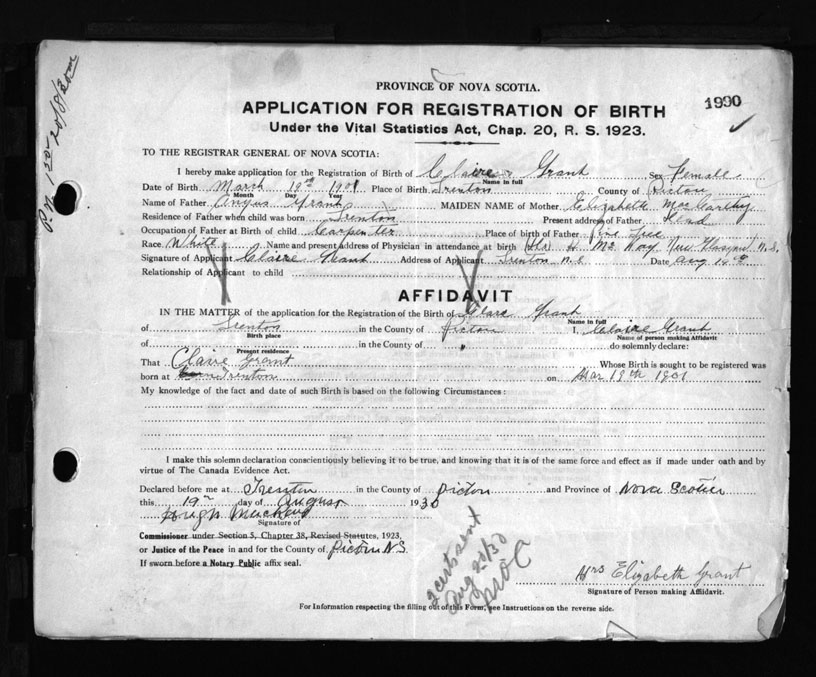 PROVINCE OF NOVA SCOTIA.
APPLICATION FOR REGISTRATION OF BIRTH
1990
Under the Vital Statistics Act, Chap. 20, R. S. 1923.
TO THE REGISTRAR GENERAL OF NOVA SCOTIA:
I hereby make application for the Registration of Birth of Claire Grant Sex Female
Name in full
Date of Birth March 19th 1901 Place of Birth Trenton County of Pictou
Month Day Year
Name of Father Angus Grant MAIDEN NAME of Mother Elizabeth MacCarthy
Residence of Father when child was born Trenton Present address of Father Dead
Occupation of Father at Birth of child Carpenter Place of birth of Father
Race White Name and present address of Physician in attendance at birth (Dr) H McKay New Glasgow N.S.
Signature of Applicant Claire Grant Address of Applicant Trenton N.S Date Aug 19th
Relationship of Applicant to child
AFFIDAVIT
IN THE MATTER of the application for the Registration of the Birth of Clare Grant
Name in full
of Trenton in the County of Pictou I, Claire Grant
Birth place Name of person making Affidavit
of in the County of do solemnly declare:
Present residence
That Claire Grant Whose Birth is sought to be registered was
born at Trenton on Mar 19th 1901
My knowledge of the fact and date of such Birth is based on the following Circumstances:
I make this solemn declaration conscientiously believing it to be true, and knowing that it is of the same force and effect as if made under oath and by
virtue of The Canada Evidence Act.
Declared before me at Trenton in the County of Pictou and Province of Nova Scotia
this 19th day of August 1930
Hugh
Signature of
Commissioner under Section 5, Chapter 38, Revised Statutes, 1923,
or Justice of the Peace in and for the County of Pictou N.S.
If sworn before a Notary Public affix seal.
Mrs Elizabeth Grant
Signature of Person making Affidavit.
sent
Aug 23/30
For Information respecting the filling out of this Form, see Instructions on the reverse side.